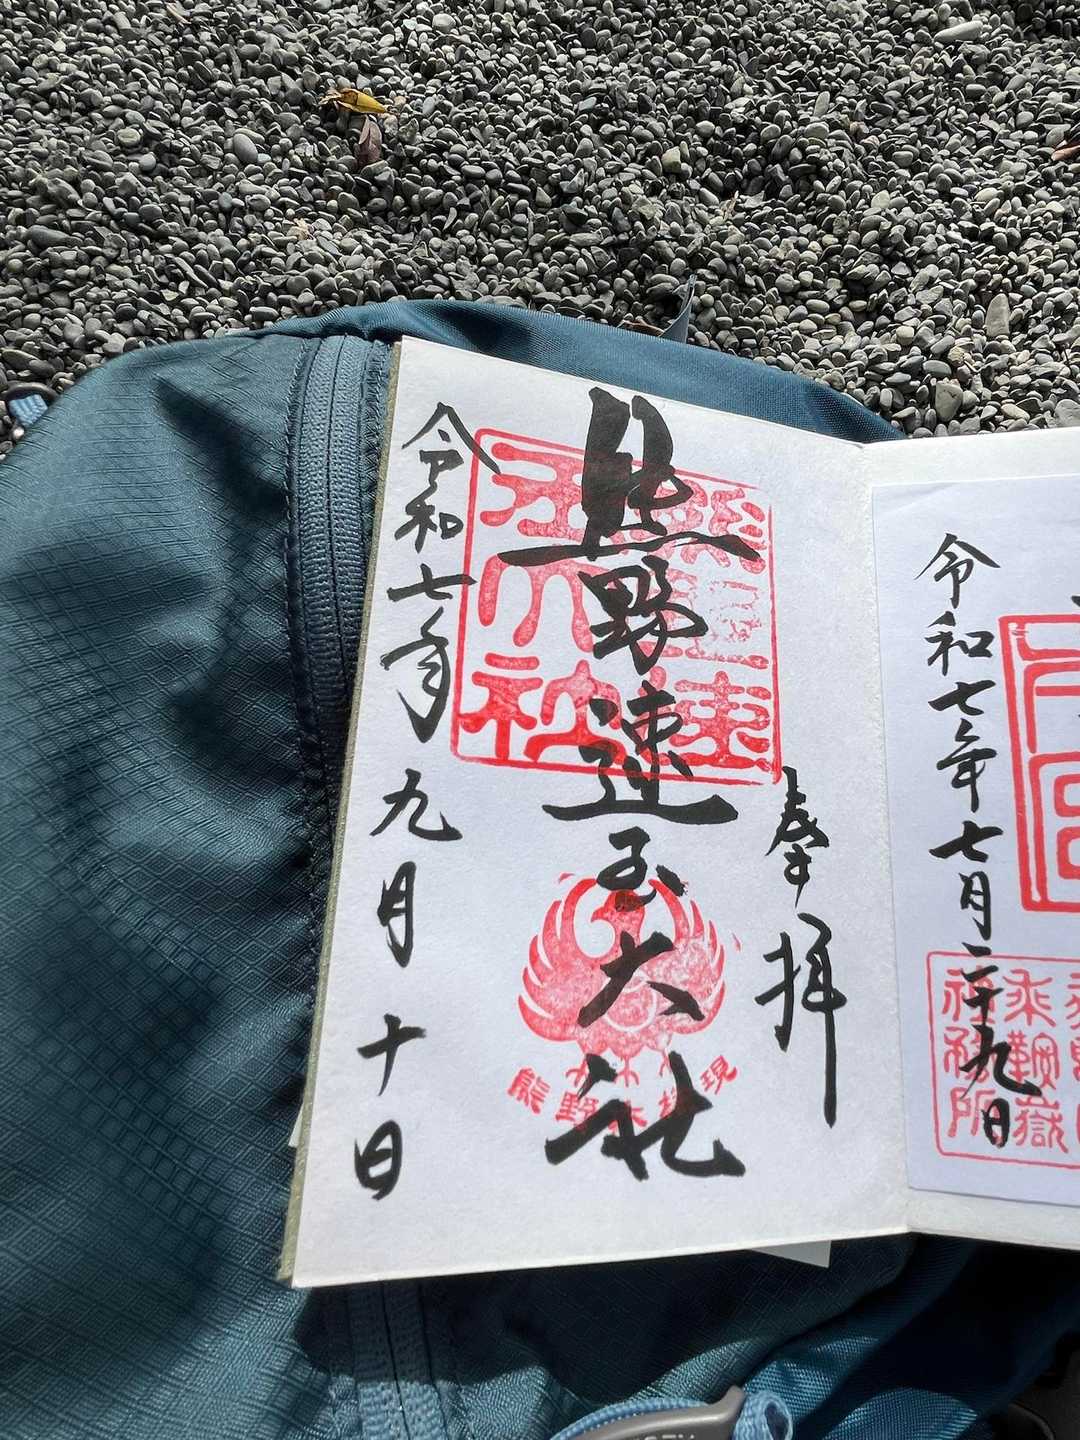 令和七年七月二十九日
乗鞍嶽
社務所
奉拝
熊野速玉大社
熊野速玉大社
熊野大権現
令和七年九月十日